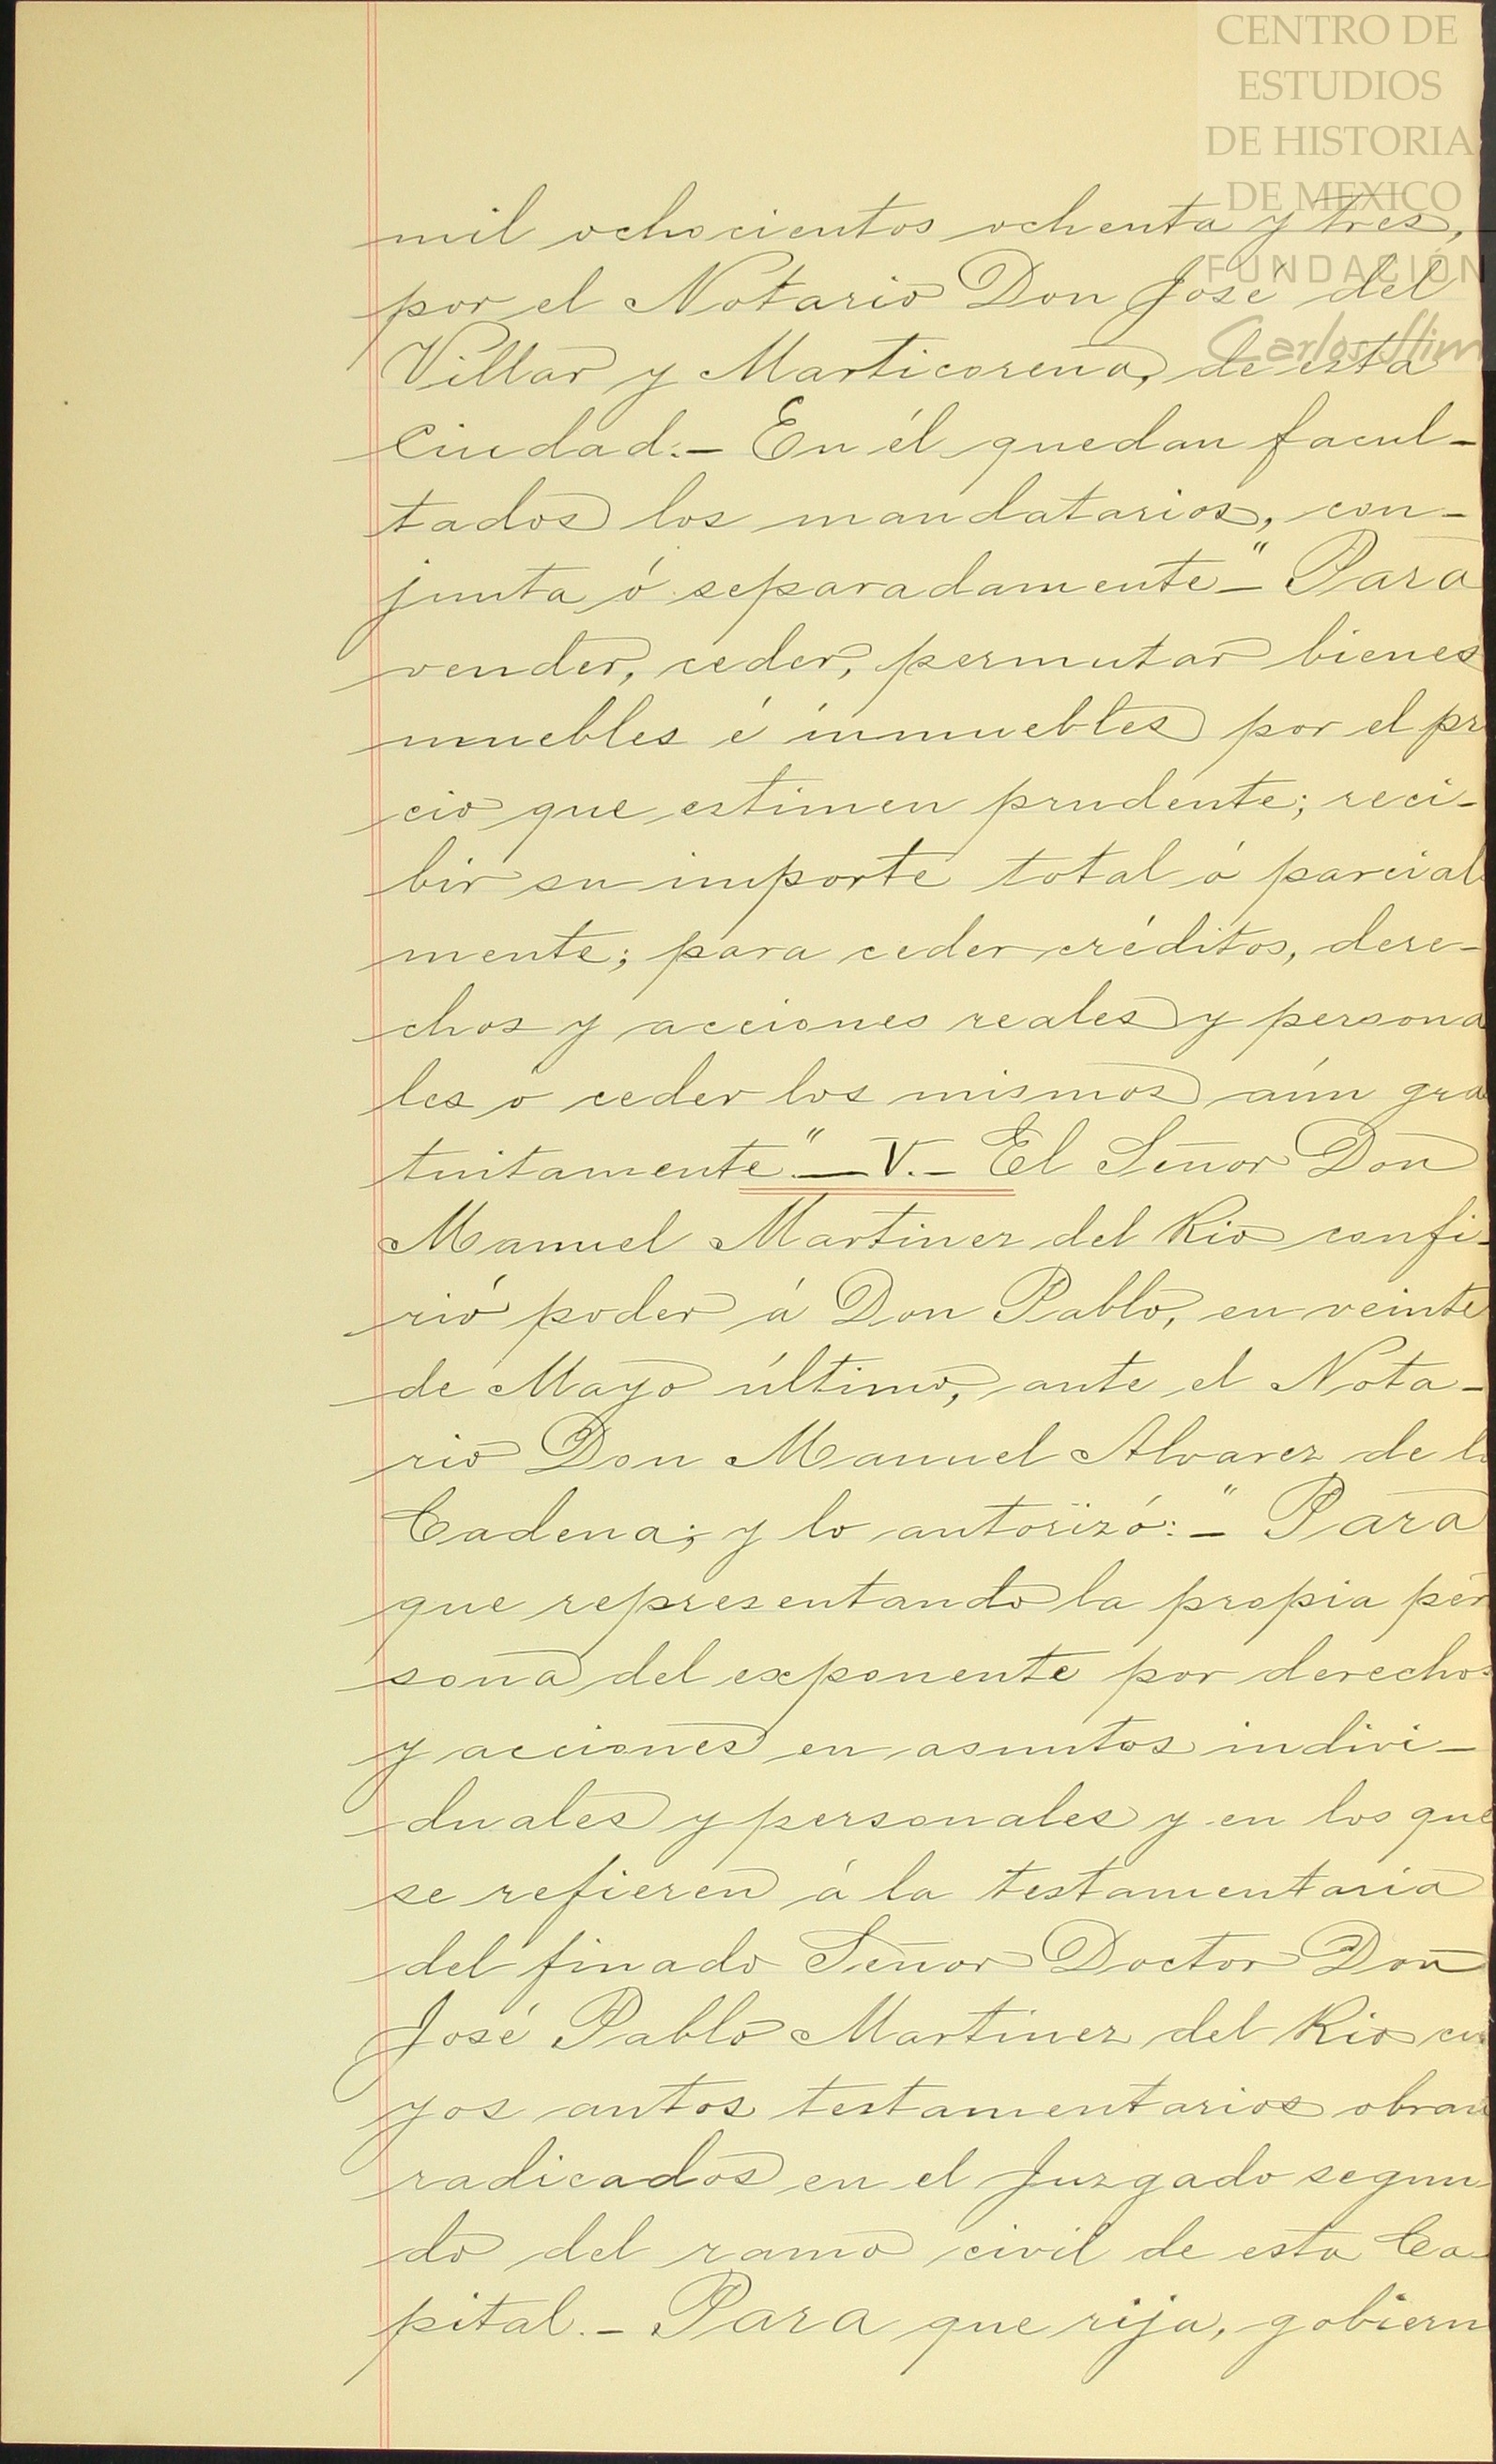 CENTRO DE
ESTUDIOS
DE HISTORIA
DE MEXICO
FUNDACIÓN
Carlos Slim
mil ochocientos ochenta y tres,
por el Notario Don José del
Villar y Marticorena, de esta
Ciudad.- En él quedan facul-
tados los mandatarios, con-
junta ó separadamente-" Para
vender, ceder, permutar bienes
muebles é inmuebles por el pre
cio que estimen prudente; reci-
bir su importe total ó parcial
mente; para ceder créditos, dere-
chos y acciones reales y persona
les ó ceder los mismos aún gra
tuitamente."—V.- El Señor Don
Manuel Martinez del Rio confi-
rió poder á Don Pablo, en veinte
de Mayo último, ante el Nota-
rio Don Manuel Alvarez de la
Cadena; y lo autorizó:-" Para
que representando la propia per
sona del exponente por derechos
y acciones en asuntos indivi-
duales y personales y en los que
se refieren á la testamentaria
del finado Señor Doctor Don
José Pablo Martinez del Rio cu
yos autos testamentarios obran
radicados en el Juzgado segun
do del ramo civil de esta Ca-
pital.- Para que rija, gobiern